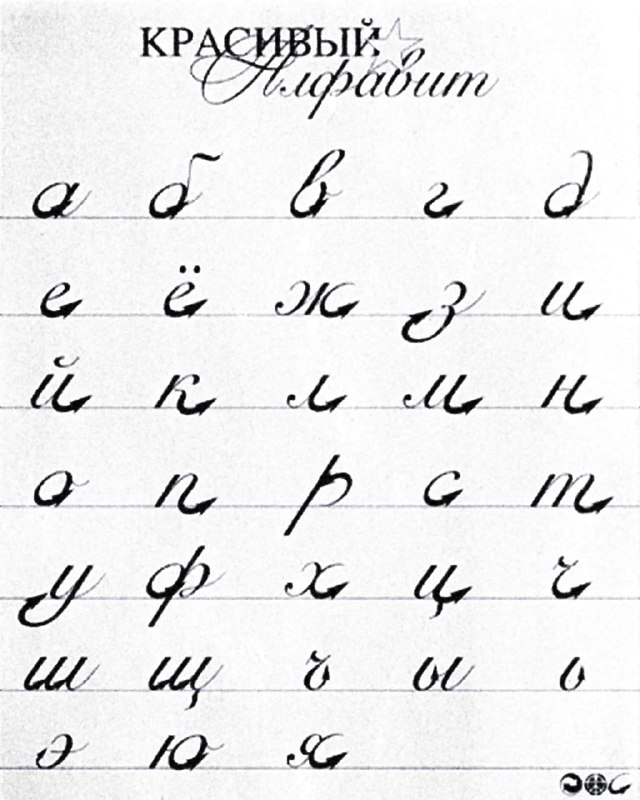 КРАСИВЫЙ
Алфавит
а б в г д
е ё ж з и
й к л м н
о п р с т
у ф х ц ч
ш щ ъ ы ь
э ю я